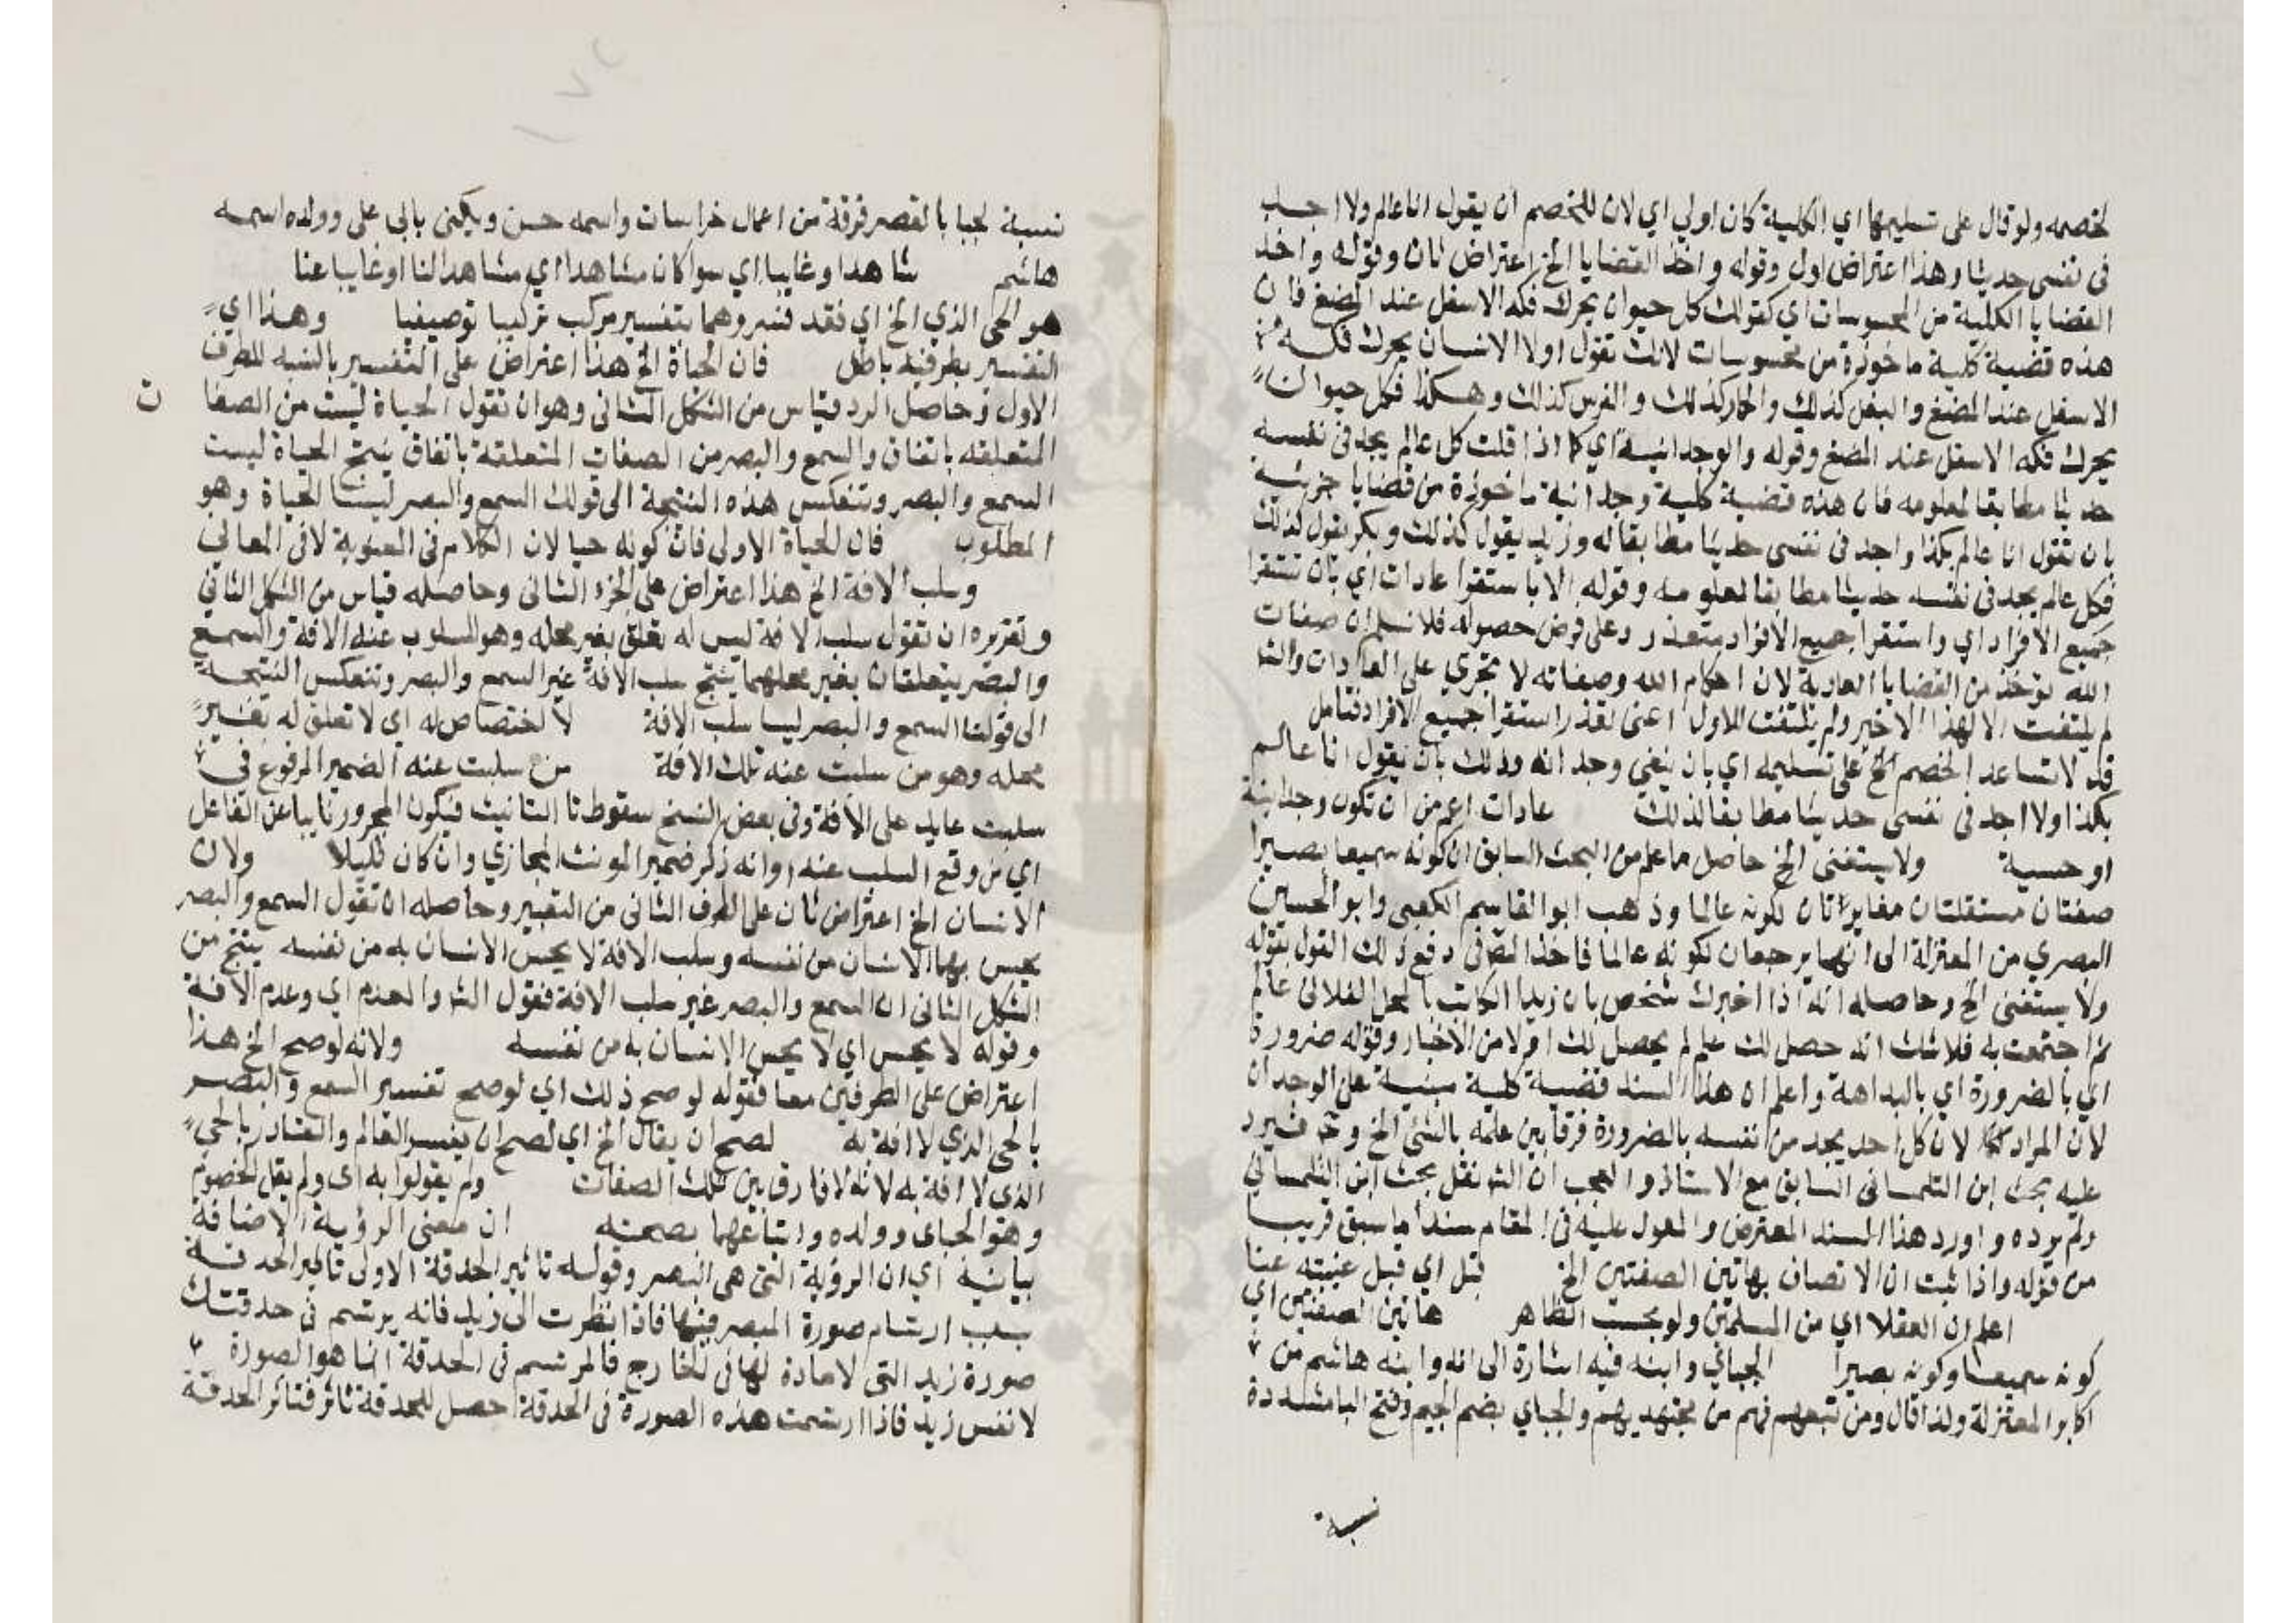 لخصمه ولو قال على تسليمها اي الكلية كان اولي اي لان للخصم ان يقول انا عالم ولا اجد
في نفسى حديثا وهذا اعتراض اول وقوله واخذ القضايا الخ اعتراض ثان وقوله واخذ
القضايا الكلية من المحسوسات اي كقولك كل حيوان يحرك فكه الاسفل عند المضغ فان
هذه قضية كلية ماخوذة من محسوسات لانك تقول اولا الانسان يحرك فكه
الاسفل عند المضغ والبغل كذلك والحمار كذلك والفرس كذلك وهكذا فكل حيوان
يحرك فكه الاسفل عند المضغ وقوله والوجدانية اي كما اذا قلت كل عالم يجد في نفسه
حديثا مطابقا لمعلومه فان هذه قضية كلية وجدانية ماخوذة من قضايا جزئية
بان تقول انا عالم بكذا واجد في نفسى حديثا مطابقا له وزيد يقول كذلك وبكر يقول كذلك
فكل عالم يجد في نفسه حديثا مطابقا لمعلومه وقوله الا باستقرا عادات اي بان تستقرا
جميع الافراد اي واستقرا جميع الافراد متعذر وعلى فرض حصوله فلا نسلم ان صفات
الله توخذ من القضايا العادية لان احكام الله وصفاته لا تجري على العادات والشا
لم يلتفت الا لهذا الاخير ولم يلتفت للاول اعنى تعذر استقرا جميع الافراد فتامل
قد لا تساعد الخصم الخ على تسليمه اي بان ينفي وجدانه وذلك بان يقول انا عالم
بكذا ولا اجد في نفسى حديثا مطابقا لذلك عادات اعم من ان تكون وجدانية
او حسية ولا يستغنى الخ حاصل ما علم من البحث السابق ان كونه سميعا بصيرا
صفتان مستقلتان مغايرتان لكونه عالما وذهب ابو القاسم الكعبى وابو الحسين
البصري من المعتزلة الى انهما يرجعان لكونه عالما فاخذ المص فى دفع ذلك القول بقوله
ولا يستغنى الخ وحاصله انه اذا اخبرك شخص بان زيدا الكاتب بالمحل الفلانى عالم
ثم اجتمعت به فلا شك انه حصل لك علم لم يحصل لك اولا من الاخبار وقوله ضرورة
اي بالضرورة اي بالبداهة واعلم ان هذا السند قضية كلية مبنية على الوجدان
لان المراد لان كل احد يجد من نفسه بالضرورة فرقا بين علمه بالشئ الخ وح فيرد
عليه بحث ابن التلمسانى السابق مع الاستاذ والعجب ان الش نقل بحث ابن التلمسانى
ولم يرده واورد هذا السند المعترض والمعول عليه فى المقام سندا ما سبق قريبا
من قوله واذا ثبت ان الاتصاف بهاتين الصفتين الخ قبل اي قبل غيبته عنا
اعلم ان العقلا اي من المسلمين ولو بحسب الظاهر هاتين الصفتين اي
كونه سميعا وكونه بصيرا الجبائي وابنه فيه اشارة الى انه وابنه هاشم من
اكابر المعتزلة ولذا قال ومن تبعهم فهم من مجتهديهم والجباي بضم الجيم وفتح البا مشددة
نسبة
نسبة لجبا بالقصر فرقة من اعمال خراسان واسمه حسن ويكنى بابى على وولده اسمه
هاشم شاهدا وغايبا اي سوا كان مشاهدا اي مشاهدا لنا او غايبا عنا
هو الحى الذي الخ اي فقد فسروهما بتفسير مركب تركيبا توصيفيا وهذا اي
التفسير بطرفيه باطل فان الحياة الخ هذا اعتراض على التفسير بالنسبه للطرف
الاول وحاصل الرد قياس من الشكل الثانى وهو ان تقول الحياة ليست من الصفا
ت
المتعلقه باتفاق والسمع والبصر من الصفات المتعلقة باتفاق ينتج الحياة ليست
السمع والبصر وتنعكس هذه النتيجة الى قولك السمع والبصر ليسا الحياة وهو
المطلوب فان الحياة الاولى فان كونه حيا لان الكلام فى المعنوية لا فى المعانى
وسلب الافة الخ هذا اعتراض على الجزء الثانى وحاصله قياس من الشكل الثانى
وتقريره ان تقول سلب الافة ليس له تعلق بغير محله وهو المسلوب عنه الافة والسمع
والبصر يتعلقان بغير محلهما ينتج سلب الافة غير السمع والبصر وتنعكس النتيجة
الى قولنا السمع والبصر ليسا سلب الافة لا لختصاص له اي لا تعلق له بغير
محله وهو من سلبت عنه تلك الافة من سلبت عنه الضمير المرفوع في
سلبت عايد على الافة وفى بعض النسخ سقوط تا التانيث فيكون المجرور نايبا عن الفاعل
اي من وقع السلب عنه او انه ذكر ضمير المونث المجازي وان كان قليلا ولان
الانسان الخ اعتراض ثان على الطرف الثانى من التفسير وحاصله ان تقول السمع والبصر
يحس بهما الانسان من نفسه وسلب الافة لا يحس الانسان به من نفسه ينتج من
الشكل الثانى ان السمع والبصر غير سلب الافة فقول الش والعدم اي وعدم الافة
وقوله لا يحس اي لا يحس الانسان به من نفسه ولانه لو صح الخ هذا
اعتراض على الطرفين معا فقوله لو صح ذلك اي لو صح تفسير السمع والبصر
بالحى الذي لا افة به لصح ان يقال الخ اي لصح ان يفسر العالم والقادر بالحى
الذى لا افة به لانه لا فارق بين تلك الصفات ولم يقولوا به اى ولم يقل الخصوم
وهو الجباى وولده واتباعهما بصحته ان معنى الرؤية الاضافة
بيانية اي ان الرؤية التى هى البصر وقوله تاثير الحدقة الاولى تاثر الحدقة
بسبب ارتسام صورة المبصر فيها فاذا نظرت الى زيد فانه يرتسم فى حدقتك
صورة زيد التى لا مادة لها فى الخارج فالمرتسم فى الحدقة انما هو الصورة
لا نفس زيد فاذا ارتسمت هذه الصورة فى الحدقة حصل للحدقة تاثر فتاثر الحدقة